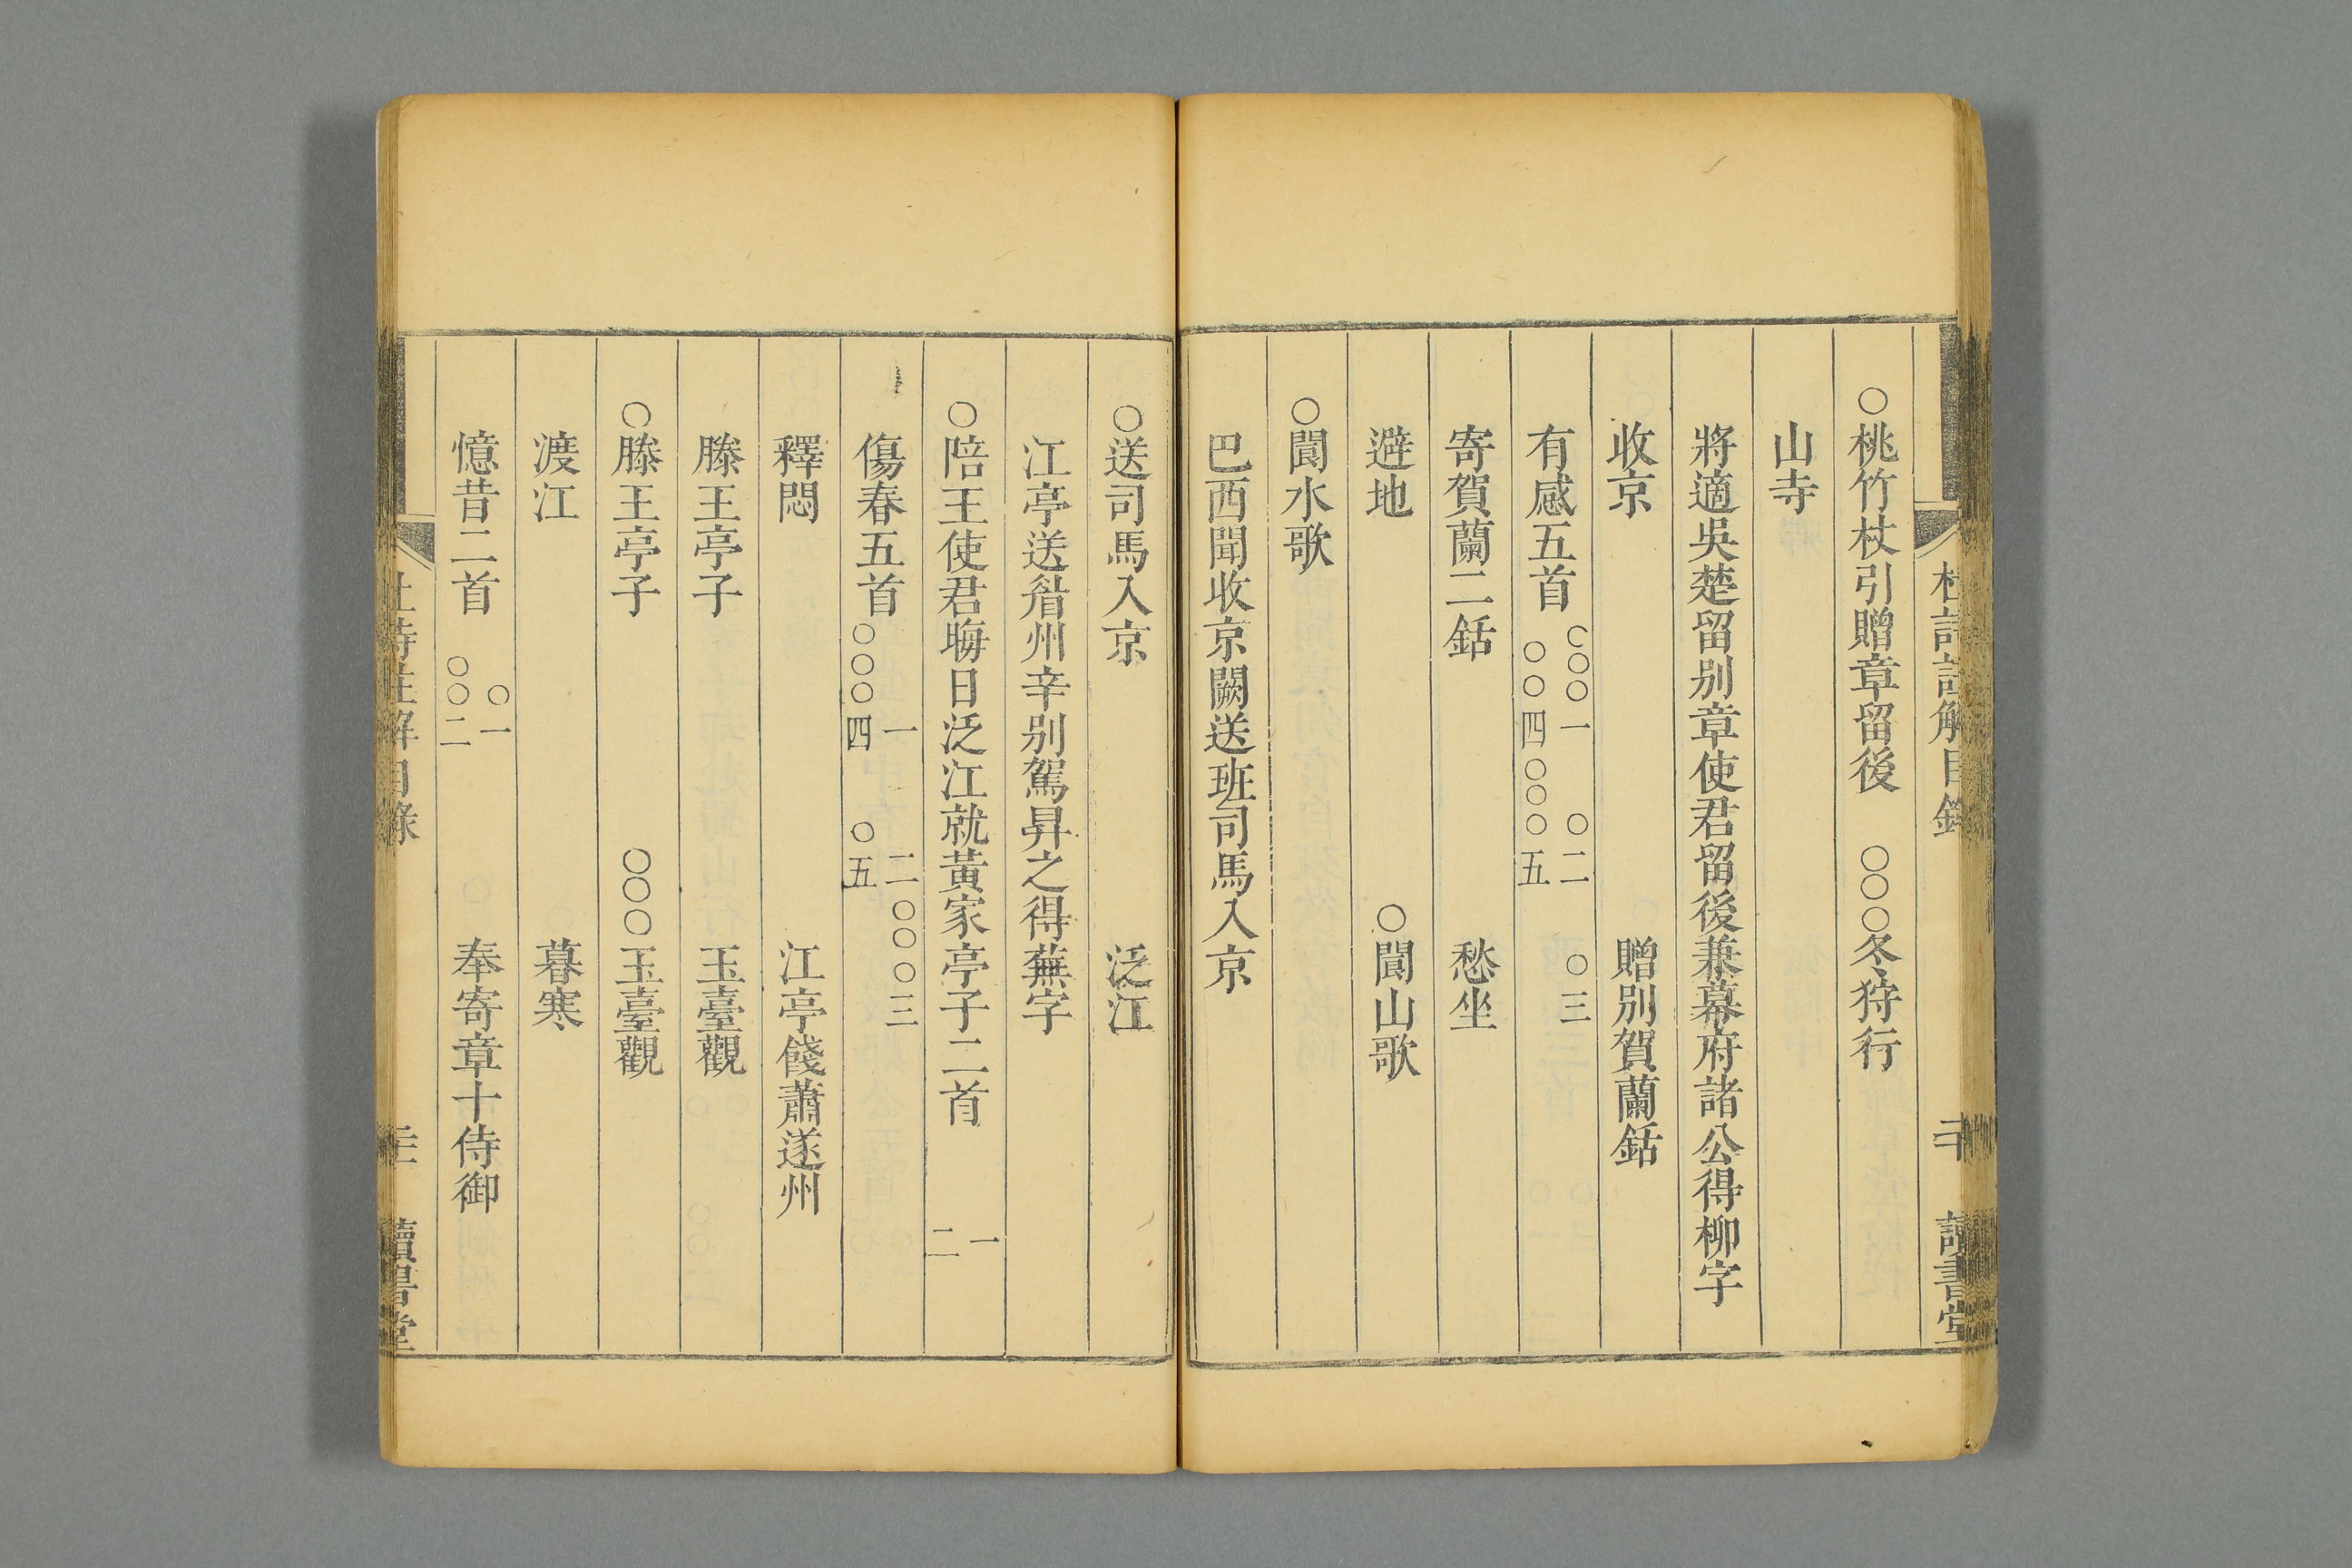 杜詩註解目錄 二十 讀書堂
○桃竹杖引贈章留後 ○○○冬狩行
山寺
將適吳楚留别章使君留後兼幕府諸公得柳字
收京 贈别賀蘭銛
有感五首 ○○○一 ○二 ○三 ○○四 ○○○五
寄賀蘭二銛 愁坐
避地 ○閬山歌
○閬水歌
巴西聞收京闕送班司馬入京
○送司馬入京 泛江
江亭送眉州辛别駕昇之得蕪字
○陪王使君晦日泛江就黃家亭子二首 一 二
傷春五首 一 二 ○○○三 ○○○四 ○五
釋悶 江亭餞蕭遂州
滕王亭子 玉臺觀
○滕王亭子 ○○○玉臺觀
渡江 暮寒
憶昔二首 ○一 ○○二 奉寄章十侍御
杜詩註解目錄 讀書堂